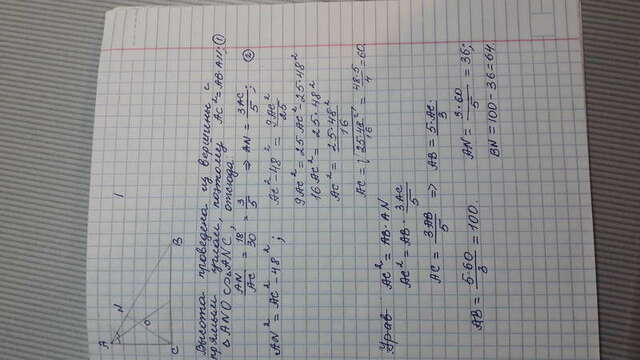 1
A
N
O
C
B
Высота проведена из вершины с
прямым углом, поэтому AC² = AB·AN; ①
△ANO ∾ △ANC, отсюда ②
AN/AC = 18/30 = 3/5 ⇒ AN = 3AC/5;
AN² = AC² - 48²; AC² - 48² = 9AC²/25
9AC² = 25AC² - 25·48²
16AC² = 25·48²
AC² = 25·48²/16
AC = √(25·48²/16) = 48·5/4 = 60.
AC² = AB·AN
AC² = AB·3AC/5
AC = 3AB/5 ⇒ AB = 5·AC/3
AB = 5·60/3 = 100. AN = 3·60/5 = 36;
BN = 100 - 36 = 64.